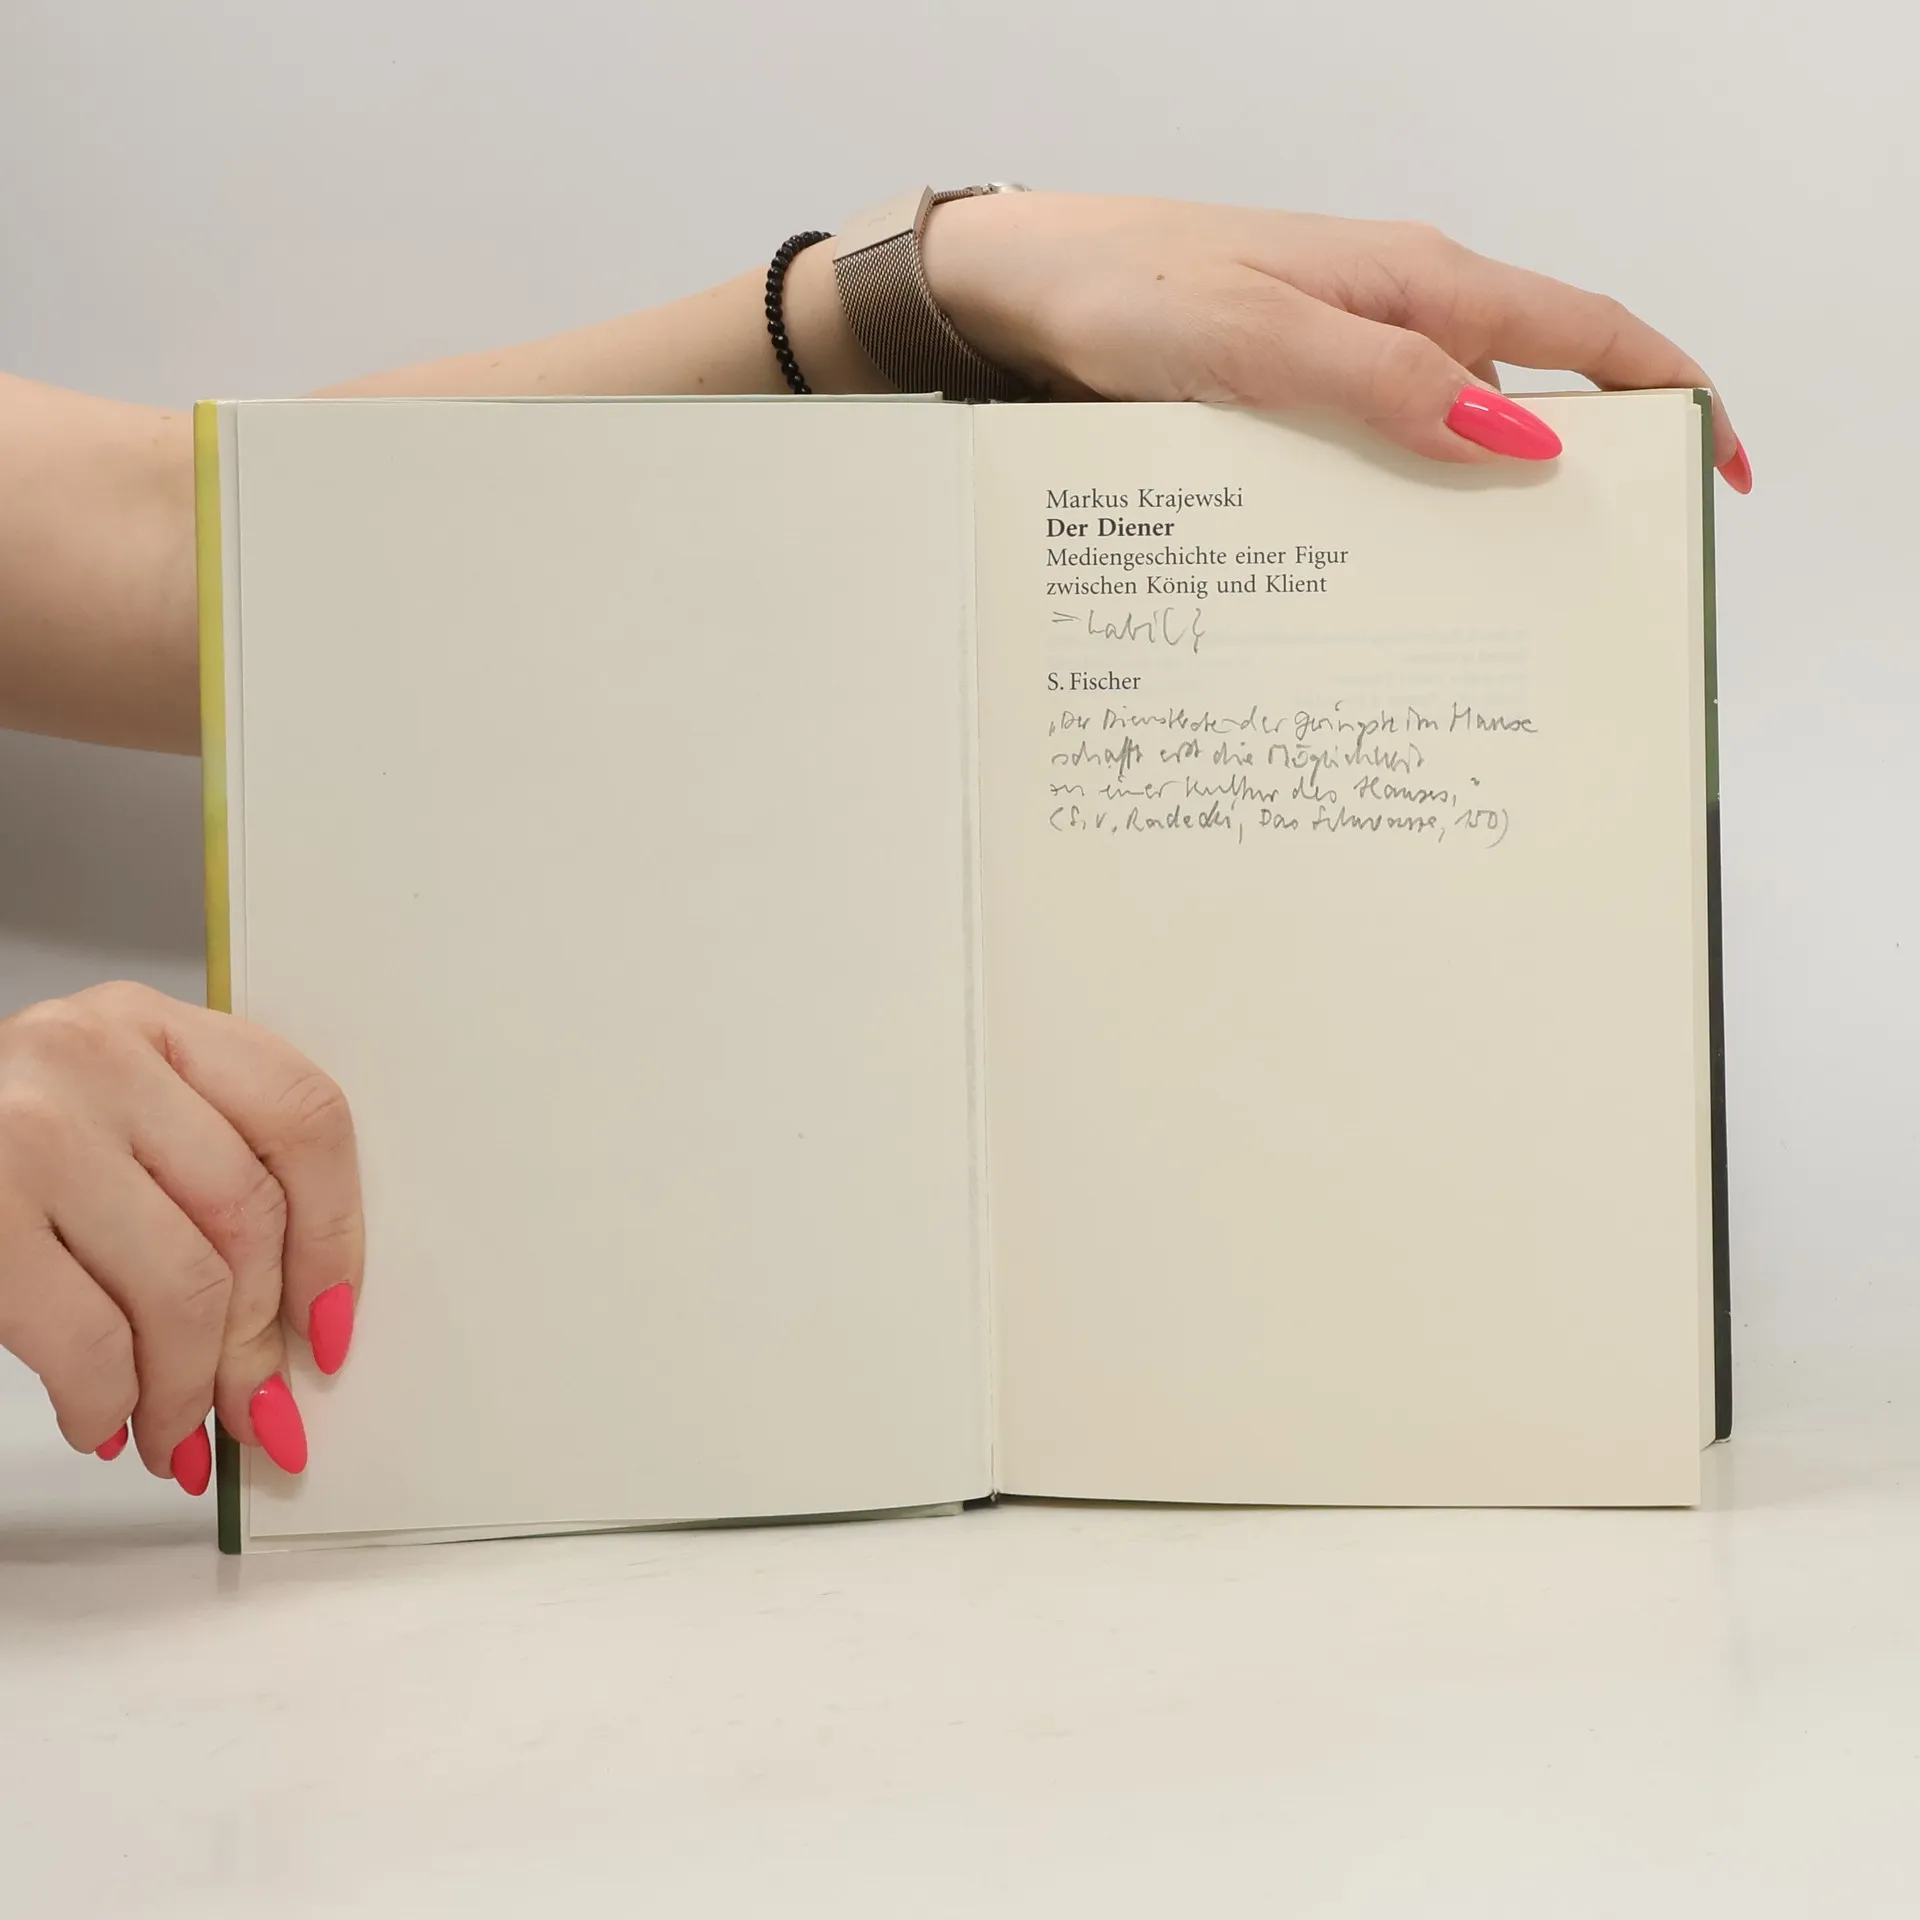 Markus Krajewski
Der Diener
Mediengeschichte einer Figur
zwischen König und Klient
S. Fischer
„Der Dienstbote der Geringste im Hause
schafft erst die Möglichkeit
zu einer Kultur des Hauses,"
(S. v. Radecki, Das Schwarze, 150)